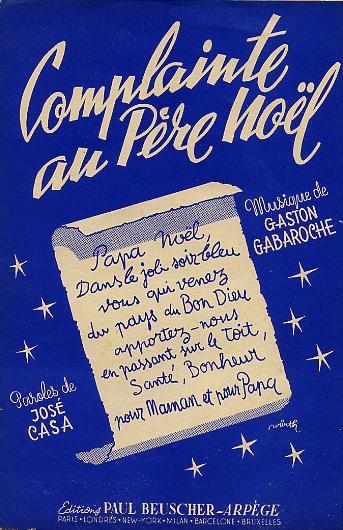 Complainte
au Père Noël
Musique de
GASTON
GABAROCHE
Papa Noël,
Dans le joli soir bleu
vous qui venez
du pays du Bon Dieu
apportez-nous
en passant sur le toit,
Santé, Bonheur,
pour Maman et pour Papa
Paroles de
JOSÉ
CASA
Editions PAUL BEUSCHER-ARPÈGE
PARIS • LONDRES • NEW-YORK • MILAN • BARCELONE • BRUXELLES